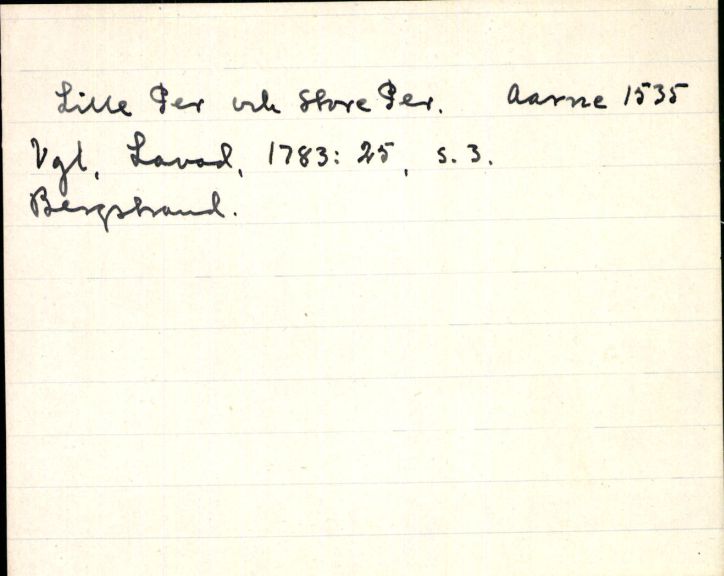 Lille Per och Store Per. Aarne 1535
Vgl, Lavad, 1783: 25, s. 3.
Bergstrand.